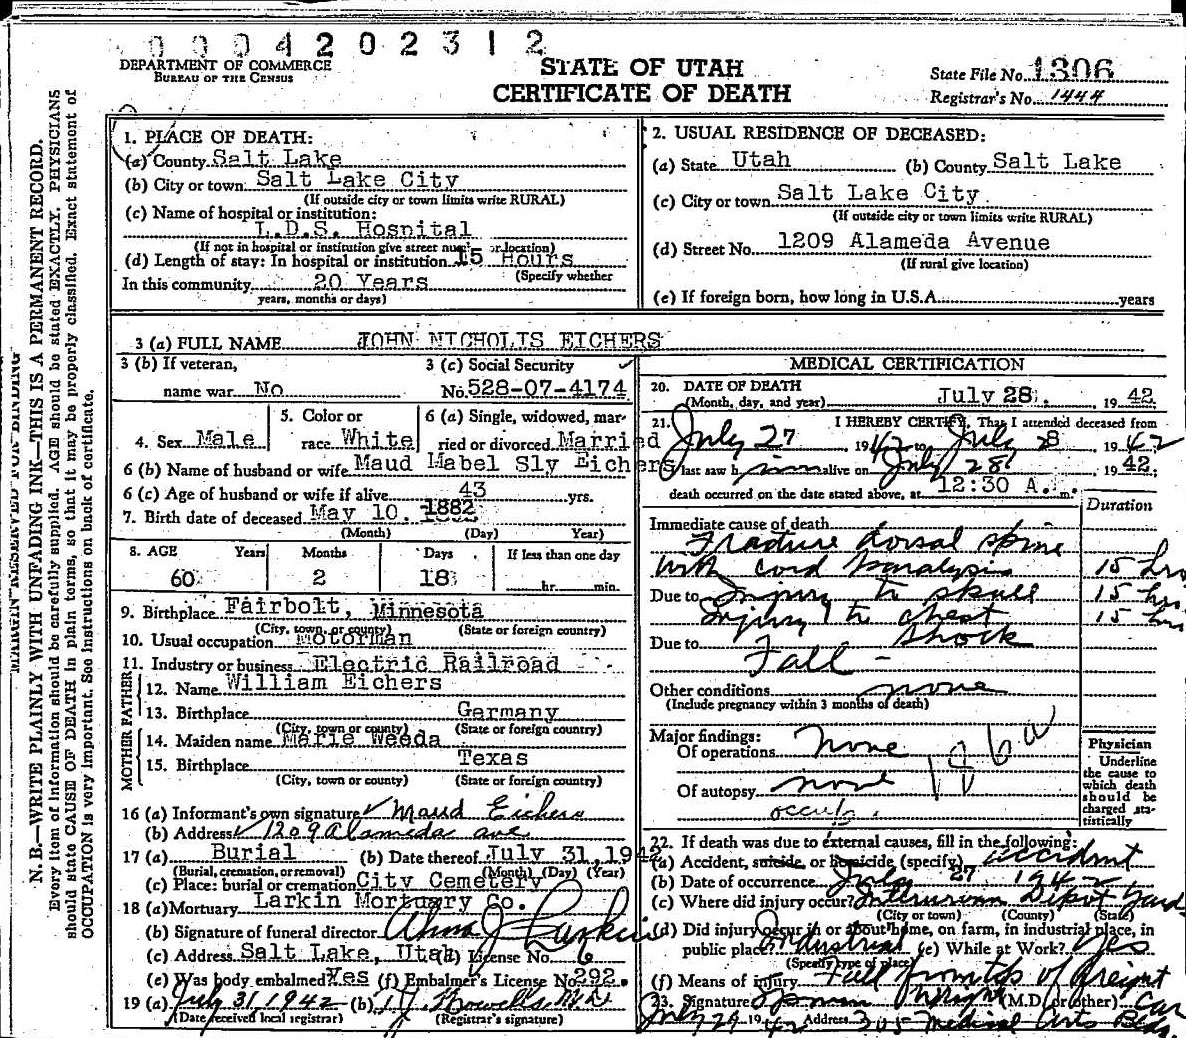 0004202312
DEPARTMENT OF COMMERCE
BUREAU OF THE CENSUS
STATE OF UTAH
CERTIFICATE OF DEATH
State File No. 1306
Registrar's No. 1444
MARGIN RESERVED FOR BINDING
N. B.—WRITE PLAINLY WITH UNFADING INK—THIS IS A PERMANENT RECORD.
Every item of information should be carefully supplied. AGE should be stated EXACTLY. PHYSICIANS
should state CAUSE OF DEATH in plain terms, so that it may be properly classified. Exact statement of
OCCUPATION is very important. See instructions on back of certificate.
1. PLACE OF DEATH:
(a) County Salt Lake
(b) City or town Salt Lake City
(If outside city or town limits write RURAL)
(c) Name of hospital or institution:
L.D.S. Hospital
(If not in hospital or institution give street number or location)
(d) Length of stay: In hospital or institution 15 Hours
(Specify whether
In this community 20 Years
years, months or days)
2. USUAL RESIDENCE OF DECEASED:
(a) State Utah (b) County Salt Lake
(c) City or town Salt Lake City
(If outside city or town limits write RURAL)
(d) Street No. 1209 Alameda Avenue
(If rural give location)
(e) If foreign born, how long in U.S.A. years
3 (a) FULL NAME JOHN NICHOLIS EICHERS
3 (b) If veteran,
name war No
3 (c) Social Security
No. 528-07-4174
4. Sex Male
5. Color or
race White
6 (a) Single, widowed, mar-
ried or divorced Married
6 (b) Name of husband or wife Maud Mabel Sly Eichers
6 (c) Age of husband or wife if alive 43 yrs.
7. Birth date of deceased May 10, 1882
(Month) (Day) Year)
8. AGE Years Months Days If less than one day
60 2 18 hr. min.
9. Birthplace Fairbolt, Minnesota
(City, town, or county) (State or foreign country)
10. Usual occupation Motorman
11. Industry or business Electric Railroad
FATHER
12. Name William Eichers
13. Birthplace Garmany
(City, town or county) (State or foreign country)
MOTHER
14. Maiden name Marie Weeda
15. Birthplace Texas
(City, town or county) (State or foreign country)
16 (a) Informant's own signature Maud Eichers
(b) Address 1209 Alameda ave
17 (a) Burial (b) Date thereof July 31, 1942
(Burial, cremation, or removal) (Month) (Day) (Year)
(c) Place: burial or cremation City Cemetery
18 (a) Mortuary Larkin Mortuary Co.
(b) Signature of funeral director Alma J Larkin
(c) Address Salt Lake, Utah (d) License No. 6
(e) Was body embalmed? Yes (f) Embalmer's License No. 292.
19 (a) July 31, 1942 (b) Howells M.D.
(Date received local registrar) (Registrar's signature)
MEDICAL CERTIFICATION
20. DATE OF DEATH
(Month, day, and year) July 28, 1942
21. I HEREBY CERTIFY, That I attended deceased from
July 27 1942 to July 28 1942
I last saw him alive on July 28 1942;
death occurred on the date stated above, at 12:30 A. m.
Duration
Immediate cause of death
Fracture dorsal spine
with cord paralysis 15 hrs
Due to Injury to skull 15 hrs
Injury to chest 15 hrs
Due to Shock
Fall -
Other conditions none
(Include pregnancy within 3 months of death)
Major findings:
Of operations none
Of autopsy none
occup.
186a
Physician
Underline
the cause to
which death
should be
charged sta-
tistically
22. If death was due to external causes, fill in the following:
(a) Accident, suicide, or homicide (specify) accident
(b) Date of occurrence July 27 1942
(c) Where did injury occur? Interurban Depot Yards
(City or town) (County) (State)
(d) Did injury occur in or about home, on farm, in industrial place, in
public place? Industrial (e) While at Work? Yes
(Specify type of place)
(f) Means of injury Fall from top of freight car
23. Signature Wright (M.D. or other)
July 29 1942 Address 305 Medical Arts Bldg.